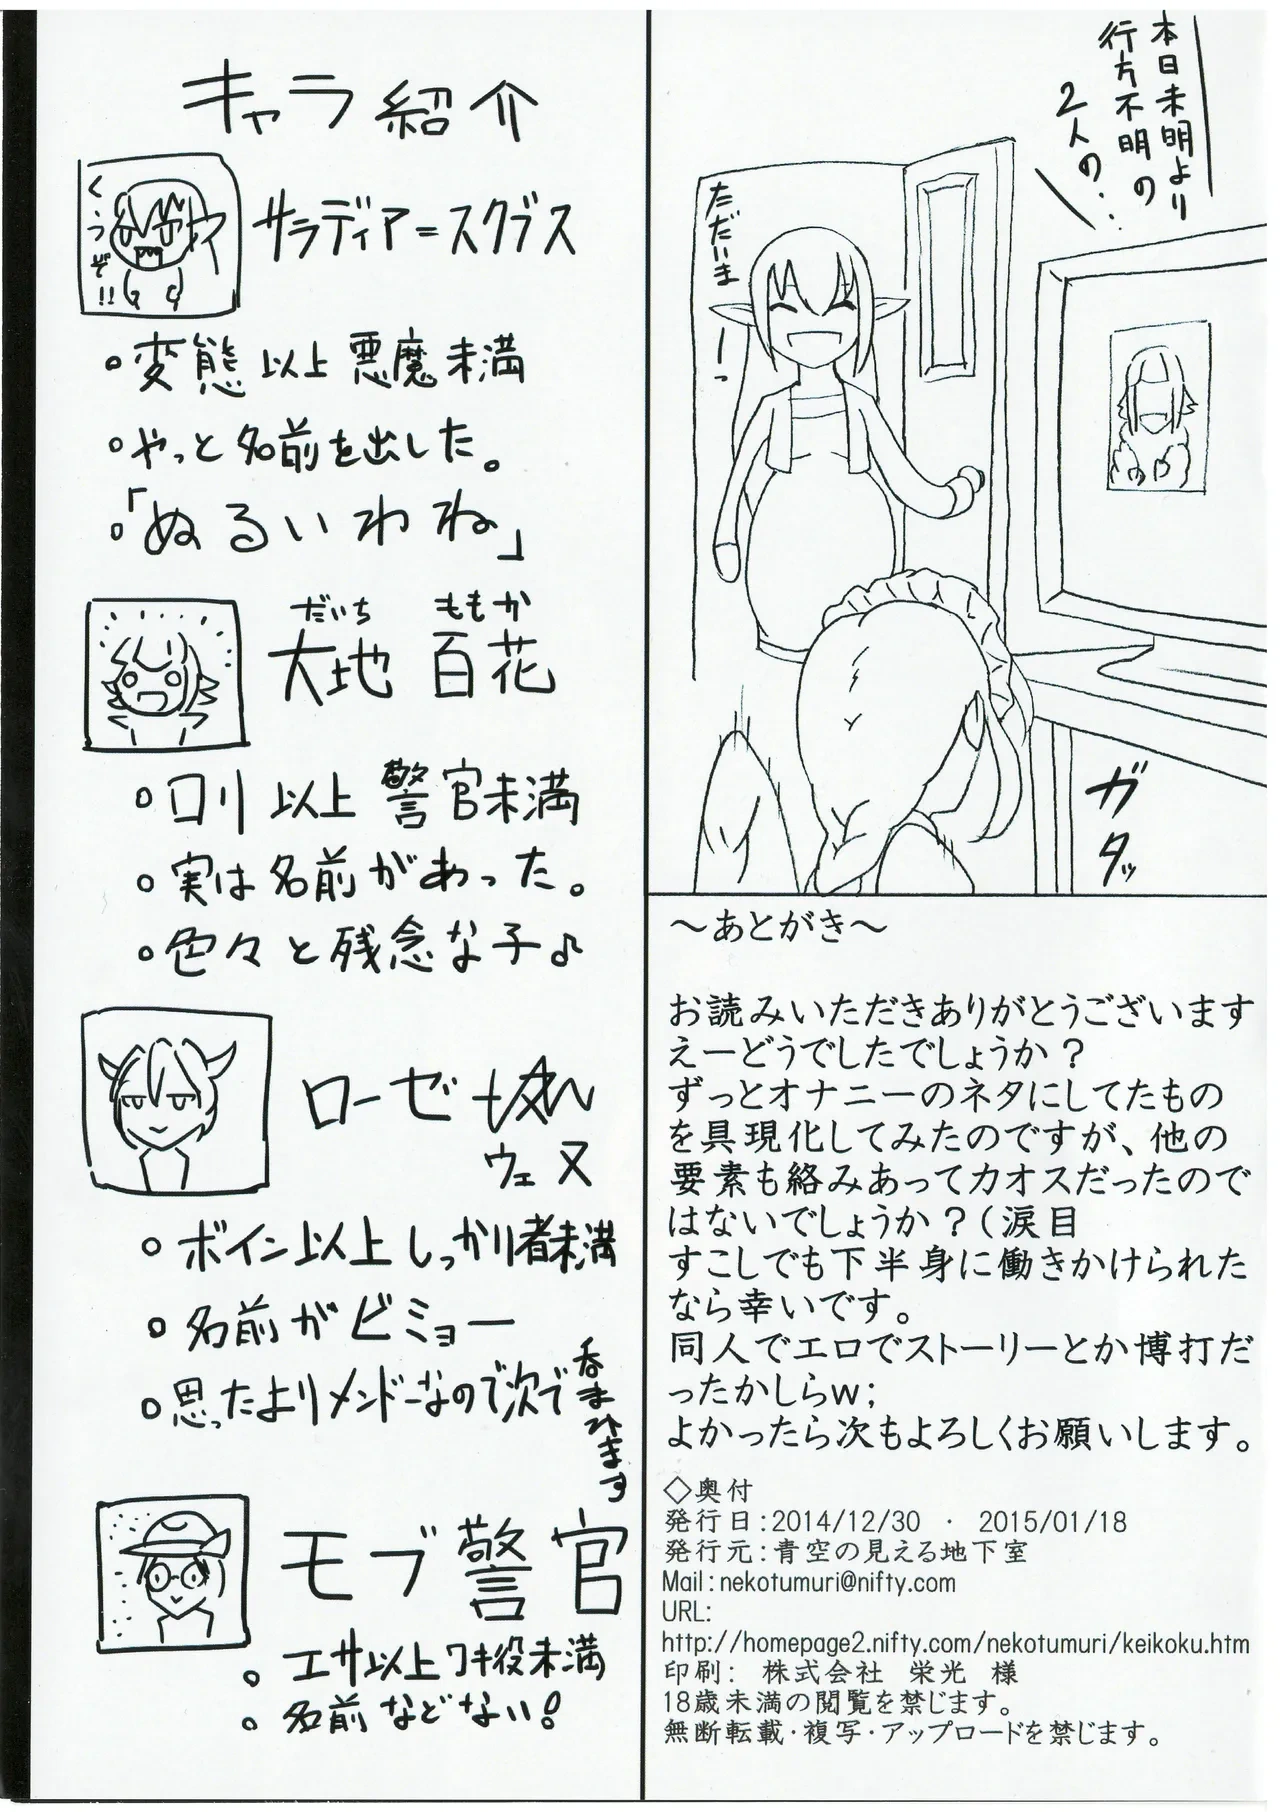 キャラ紹介
くうぞ!!
サラディア=スクブス
・変態以上悪魔未満
・やっと名前を出した。
・「ぬるいわね」
だいち ももか
大地 百花
・ロリ以上 警官未満
・実は名前があった。
・色々と残念な子♪
ローゼ
ウェヌ
・ボイン以上しっかり者未満
・名前がビミョー
・思ったよりメンドーなので次で
呑まれます
モブ警官
・エサ以上ワキ役未満
・名前などない!
本日未明より
行方不明の
2人の…
ただいまーっ
ガタッ
~あとがき~
お読みいただきありがとうございます
えーどうでしたでしょうか?
ずっとオナニーのネタにしてたもの
を具現化してみたのですが、他の
要素も絡みあってカオスだったので
はないでしょうか?(涙目
すこしでも下半身に働きかけられた
なら幸いです。
同人でエロでストーリーとか博打だ
ったかしらw;
よかったら次もよろしくお願いします。
◇奥付
発行日:2014/12/30 ・ 2015/01/18
発行元:青空の見える地下室
Mail:nekotumuri@nifty.com
URL:
http://homepage2.nifty.com/nekotumuri/keikoku.htm
印刷: 株式会社 栄光 様
18歳未満の閲覧を禁じます。
無断転載・複写・アップロードを禁じます。